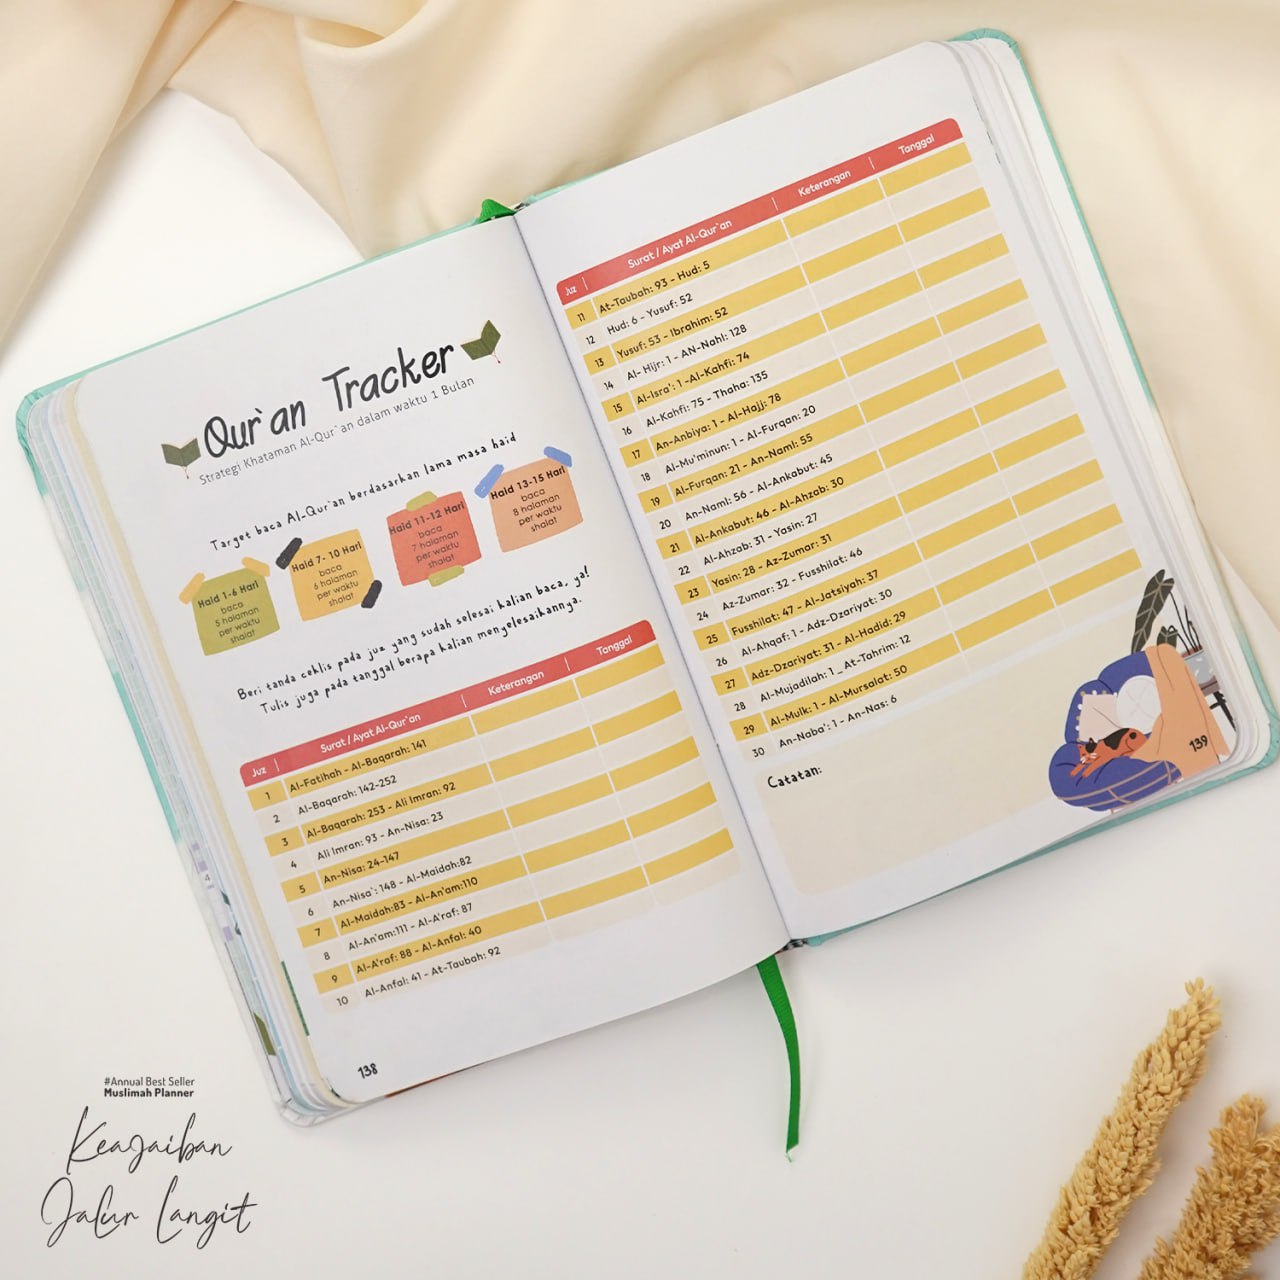 Qur`an Tracker
Strategi Khataman Al-Qur`an dalam waktu 1 Bulan
Target baca Al-Qur'an berdasarkan lama masa haid
Haid 1-6 Hari
baca
5 halaman
per waktu
shalat
Haid 7- 10 Hari
baca
6 halaman
per waktu
shalat
Haid 11-12 Hari
baca
7 halaman
per waktu
shalat
Haid 13-15 Hari
baca
8 halaman
per waktu
shalat
Beri tanda ceklis pada juz yang sudah selesai kalian baca, ya!
Tulis juga pada tanggal berapa kalian menyelesaikannya.
Juz | Surat / Ayat Al-Qur`an | Keterangan | Tanggal
1 Al-Fatihah - Al-Baqarah: 141
2 Al-Baqarah: 142-252
3 Al-Baqarah: 253 - Ali Imran: 92
4 Ali Imran: 93 - An-Nisa: 23
5 An-Nisa: 24-147
6 An-Nisa`: 148 - Al-Maidah:82
7 Al-Maidah:83 - Al-An'am:110
8 Al-An'am:111 - Al-A'raf: 87
9 Al-A'raf: 88 - Al-Anfal: 40
10 Al-Anfal: 41 - At-Taubah: 92
138
Juz | Surat / Ayat Al-Qur`an | Keterangan | Tanggal
11 At-Taubah: 93 - Hud: 5
12 Hud: 6 - Yusuf: 52
13 Yusuf: 53 - Ibrahim: 52
14 Al- Hijr: 1 - AN-Nahl: 128
15 Al-Isra': 1 -Al-Kahfi: 74
16 Al-Kahfi: 75 - Thaha: 135
17 An-Anbiya: 1 - Al-Hajj: 78
18 Al-Mu'minun: 1 - Al-Furqan: 20
19 Al-Furqan: 21 - An-Naml: 55
20 An-Naml: 56 - Al-Ankabut: 45
21 Al-Ankabut: 46 - Al-Ahzab: 30
22 Al-Ahzab: 31 - Yasin: 27
23 Yasin: 28 - Az-Zumar: 31
24 Az-Zumar: 32 - Fusshilat: 46
25 Fusshilat: 47 - Al-Jatsiyah: 37
26 Al-Ahqaf: 1 - Adz-Dzariyat: 30
27 Adz-Dzariyat: 31 - Al-Hadid: 29
28 Al-Mujadilah: 1 _ At-Tahrim: 12
29 Al-Mulk: 1 - Al-Mursalat: 50
30 An-Naba': 1 - An-Nas: 6
Catatan:
139
#Annual Best Seller
Muslimah Planner
Keajaiban
Jalur Langit